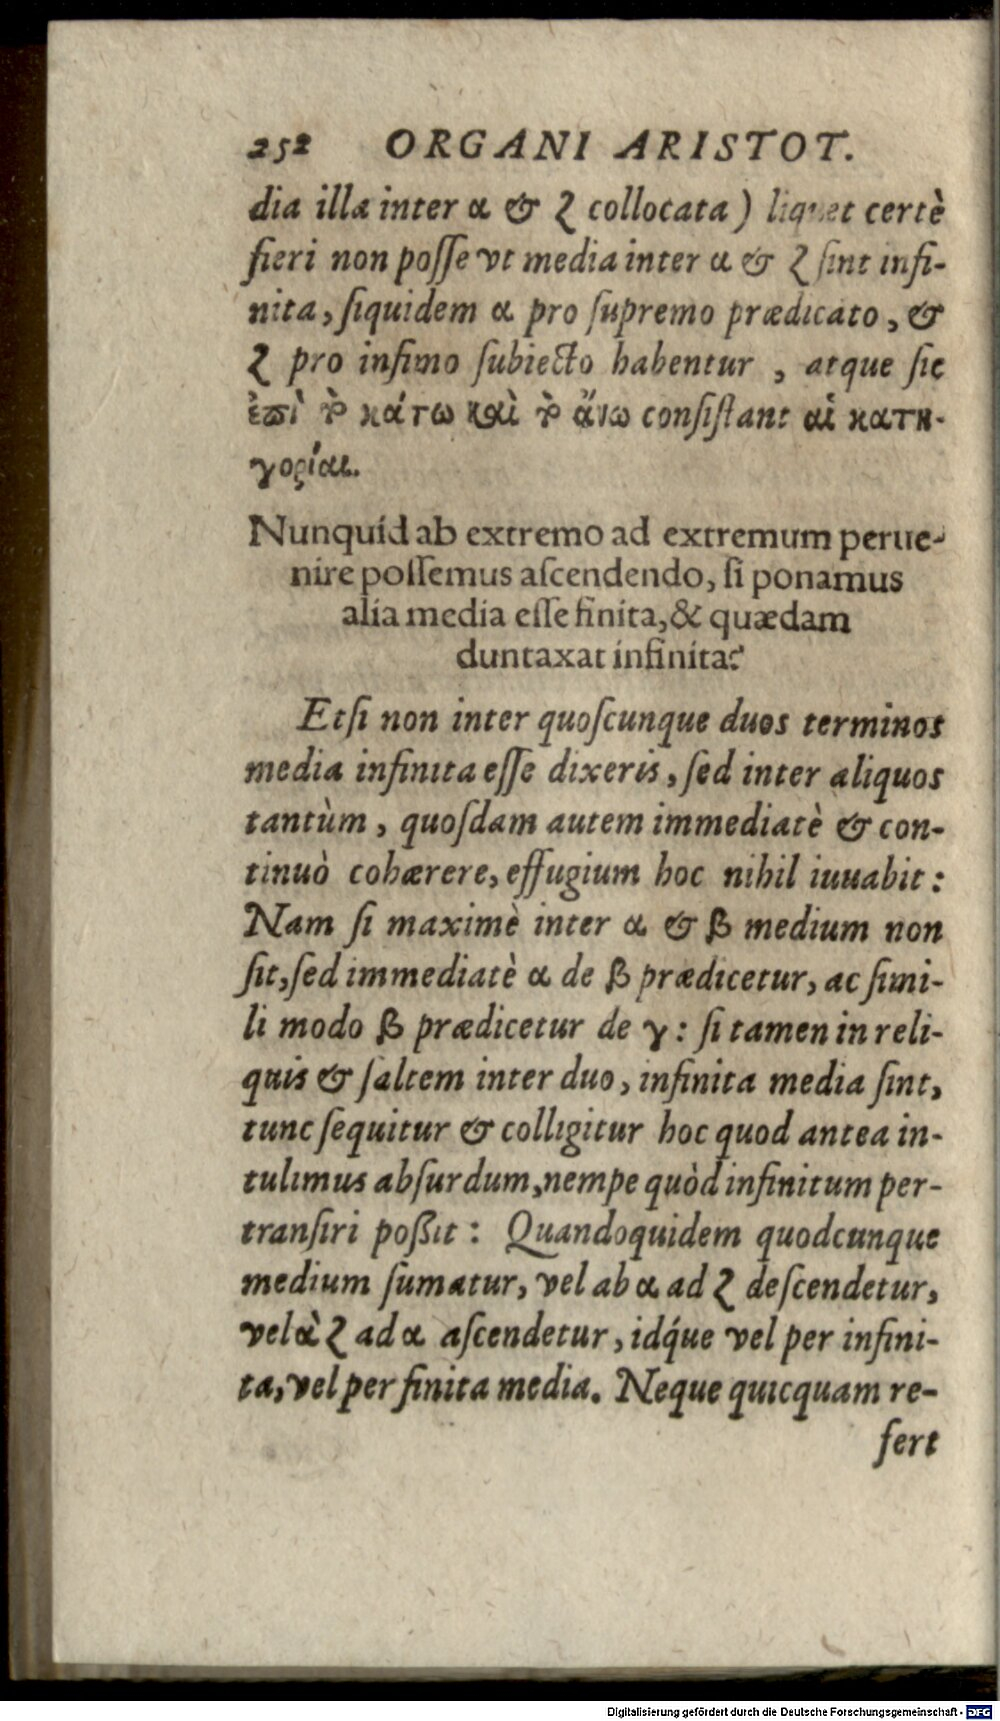 252 ORGANI ARISTOT.
dia illa inter α & ζ collocata) liquet certè
fieri non poſſe vt media inter α & ζ ſint infi-
nita, ſiquidem α pro ſupremo prædicato, &
ζ pro infimo ſubiecto habentur, atque ſic
ἐπὶ τὸ κάτω καὶ τὸ ἄνω conſiſtant αἱ κατη-
γορίαι.
Nunquid ab extremo ad extremum perue-
nire poſſemus aſcendendo, ſi ponamus
alia media eſſe finita, & quædam
duntaxat infinita?
Etſi non inter quoſcunque duos terminos
media infinita eſſe dixeris, ſed inter aliquos
tantùm, quoſdam autem immediatè & con-
tinuò cohærere, effugium hoc nihil iuuabit:
Nam ſi maximè inter α & β medium non
ſit, ſed immediatè α de β prædicetur, ac ſimi-
li modo β prædicetur de γ: ſi tamen in reli-
quis & ſaltem inter duo, infinita media ſint,
tunc ſequitur & colligitur hoc quod antea in-
tulimus abſurdum, nempe quòd infinitum per-
tranſiri poßit: Quandoquidem quodcunque
medium ſumatur, vel ab α ad ζ deſcendetur,
vel à ζ ad α aſcendetur, idq́ue vel per infini-
ta, vel per finita media. Neque quicquam re-
fert
Digitalisierung gefördert durch die Deutsche Forschungsgemeinschaft - DFG